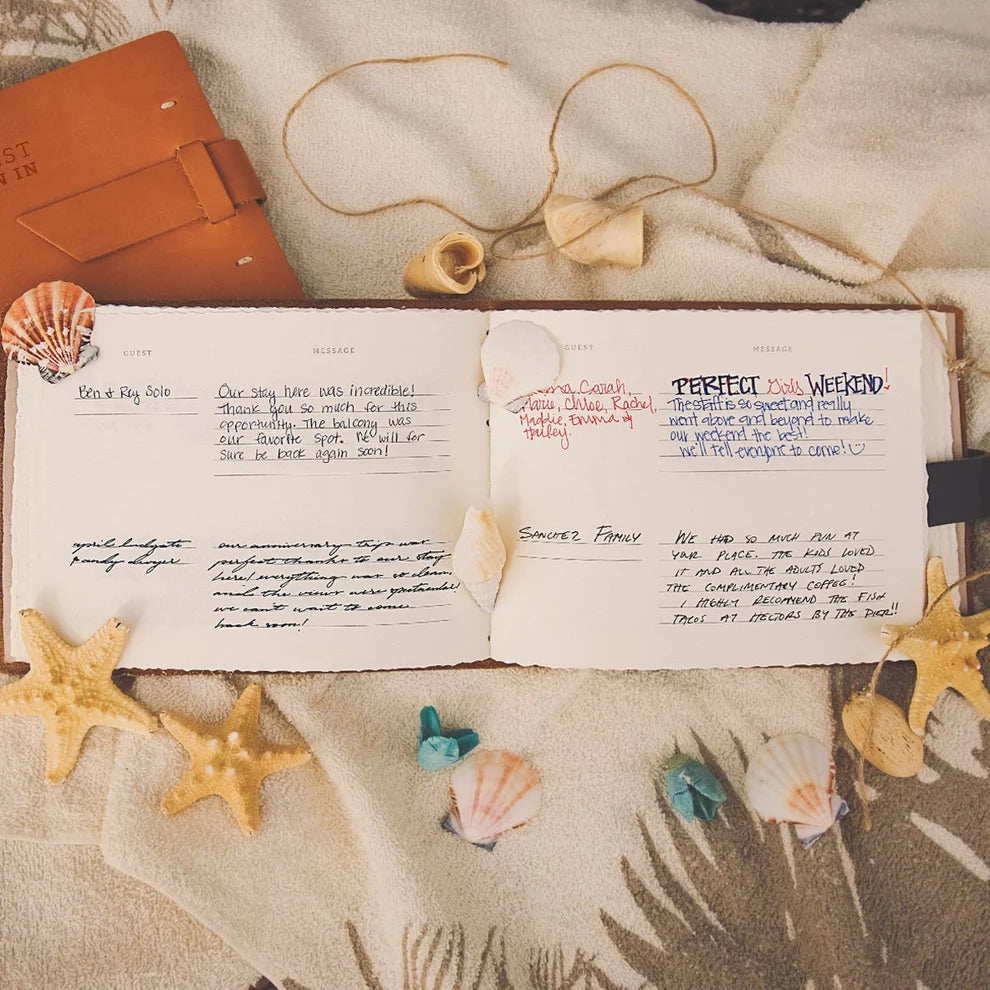 EST
N IN
GUEST
MESSAGE
Ben & Rey Solo
Our stay here was incredible!
Thank you so much for this
opportunity. The balcony was
our favorite spot. We will for
sure be back again soon!
april ludgate
& andy dwyer
our anniversary trip was
perfect thanks to our stay
here! everything was so clean
and the views were spectacular!
we can't wait to come
back soon!
GUEST
MESSAGE
Carah,
Marie, Chloe, Rachel,
Maddie, Emma &
Hailey.
PERFECT Girls WEEKEND!
The staff is so sweet and really
went above and beyond to make
our weekend the best!
we'll tell everyone to come!
SANCHEZ FAMILY
WE HAD SO MUCH FUN AT
YOUR PLACE. THE KIDS LOVED
IT AND ALL THE ADULTS LOVED
THE COMPLIMENTARY COFFEE!
I HIGHLY RECOMMEND THE FISH
TACOS AT HECTORS BY THE PIER!!